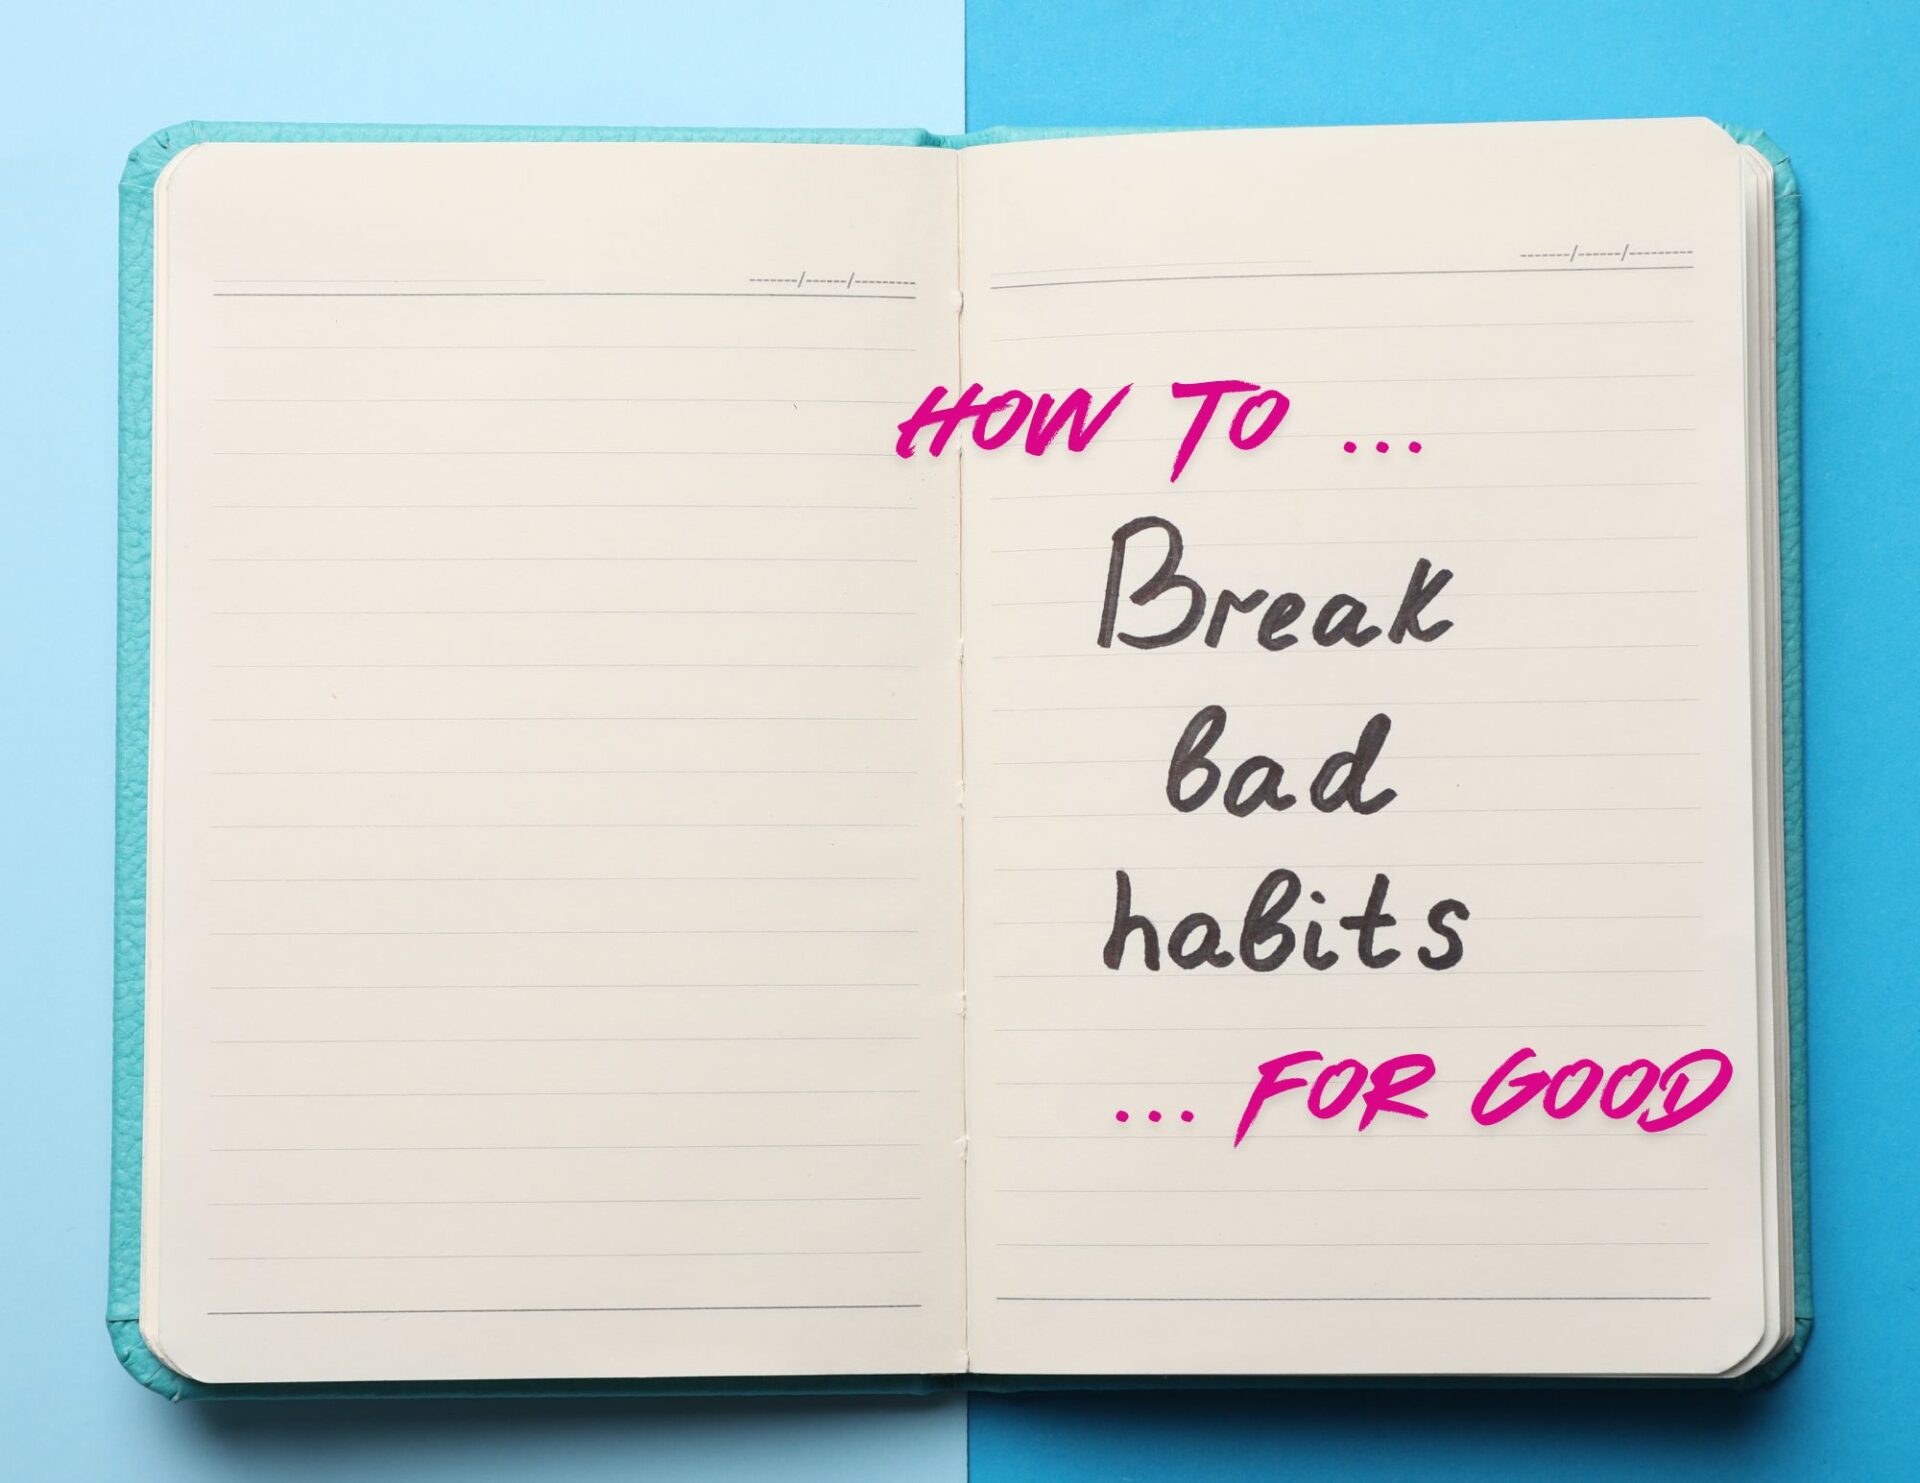 HOW TO ...
Break
bad
habits
... FOR GOOD